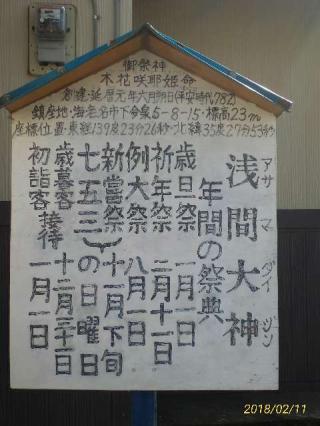 御祭神
木花咲耶姫命
創建・延暦元年六月朔日(平安時代782)
鎮座地・海老名市下今泉5-8-15・標高23m
座標位置・東経139度23分26秒・北緯35度27分53秒
浅間大神
アサマダイジン
年間の祭典
歳旦祭 一月一日
祈年祭 二月十一日
例大祭 八月一日
新嘗祭 十一月下旬
七五三 の日曜日
歳暮客 十二月三十一日
初詣客 一月一日
接待
2018/02/11